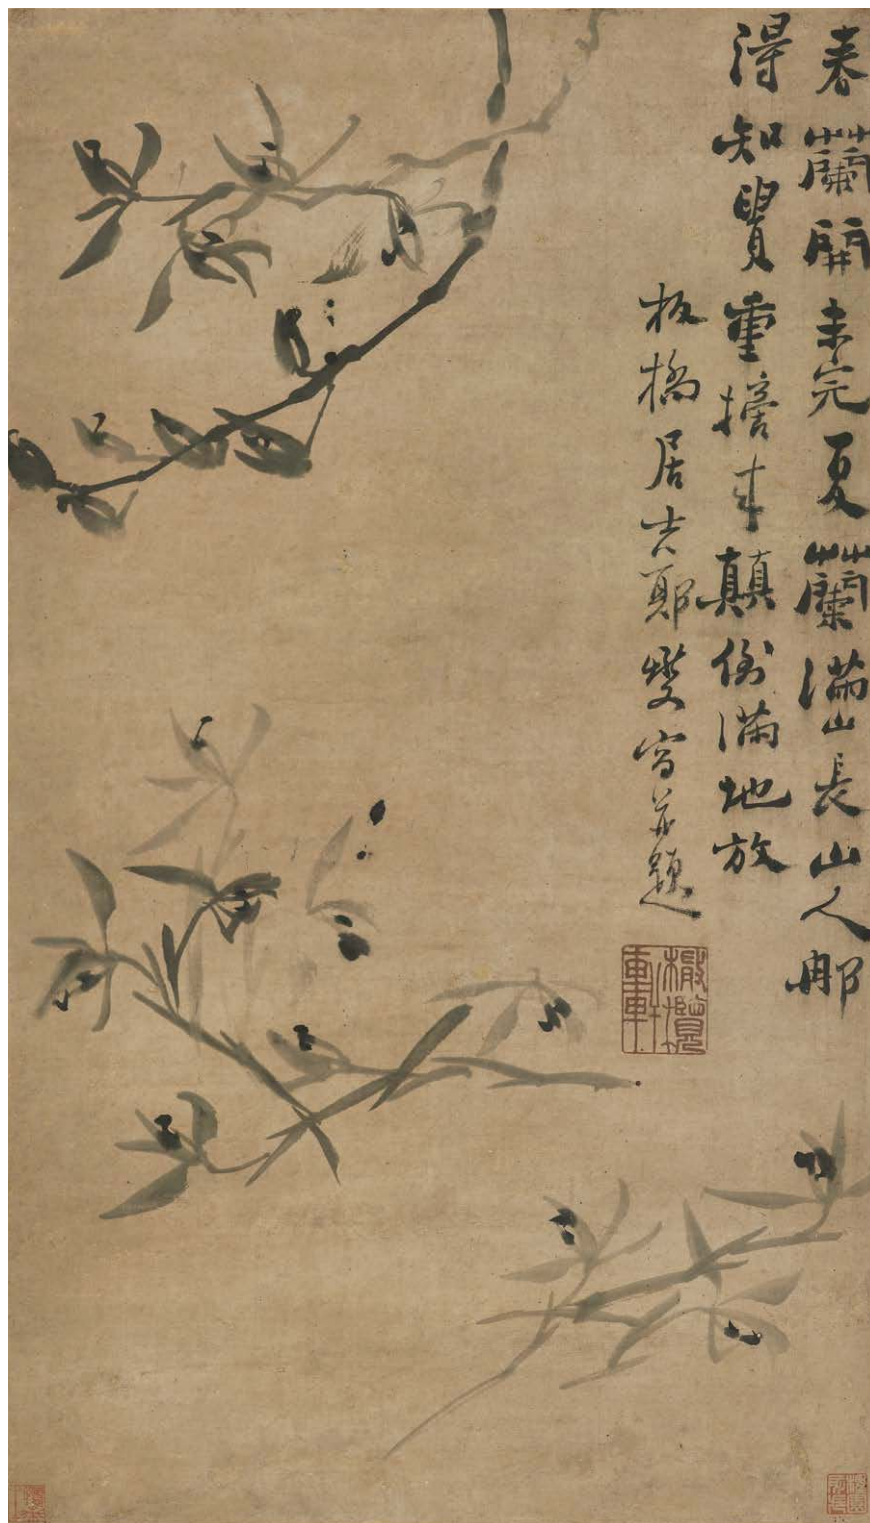 春蘭開未完夏蘭滿山長山人那
得知貴重擔來顛倒滿地放
板橋居士鄭燮寫并題
橄欖軒